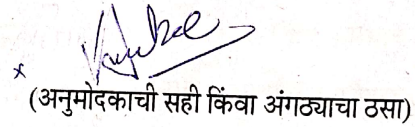 (अनुमोदकाची सही किंवा अंगठ्याचा ठसा)